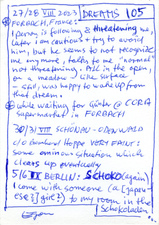 27/28 VIII 2023 DREAMS 105
FORBACH, France:
Guenay is following & threatening me,
later I am cautious & try to avoid
him, but he seems to not recognize
me any more, talks to me "normal"
not threatening. All in the open,
on a meadow-like surface
- still, was happy to wake up from
that dream.
while waiting for Günter @ CORA
supermarket in FORBACH
30/31 VIII SCHÖNAU - ODENWALD
c/o bernhard Hoppe VERY FAUL:
some ominous situation which
clears up eventually
5/6 IX BERLIN: SCHOKO (again)
I come with someone (a [japan-
ese?] girl?) to my room in the
Schokoladen